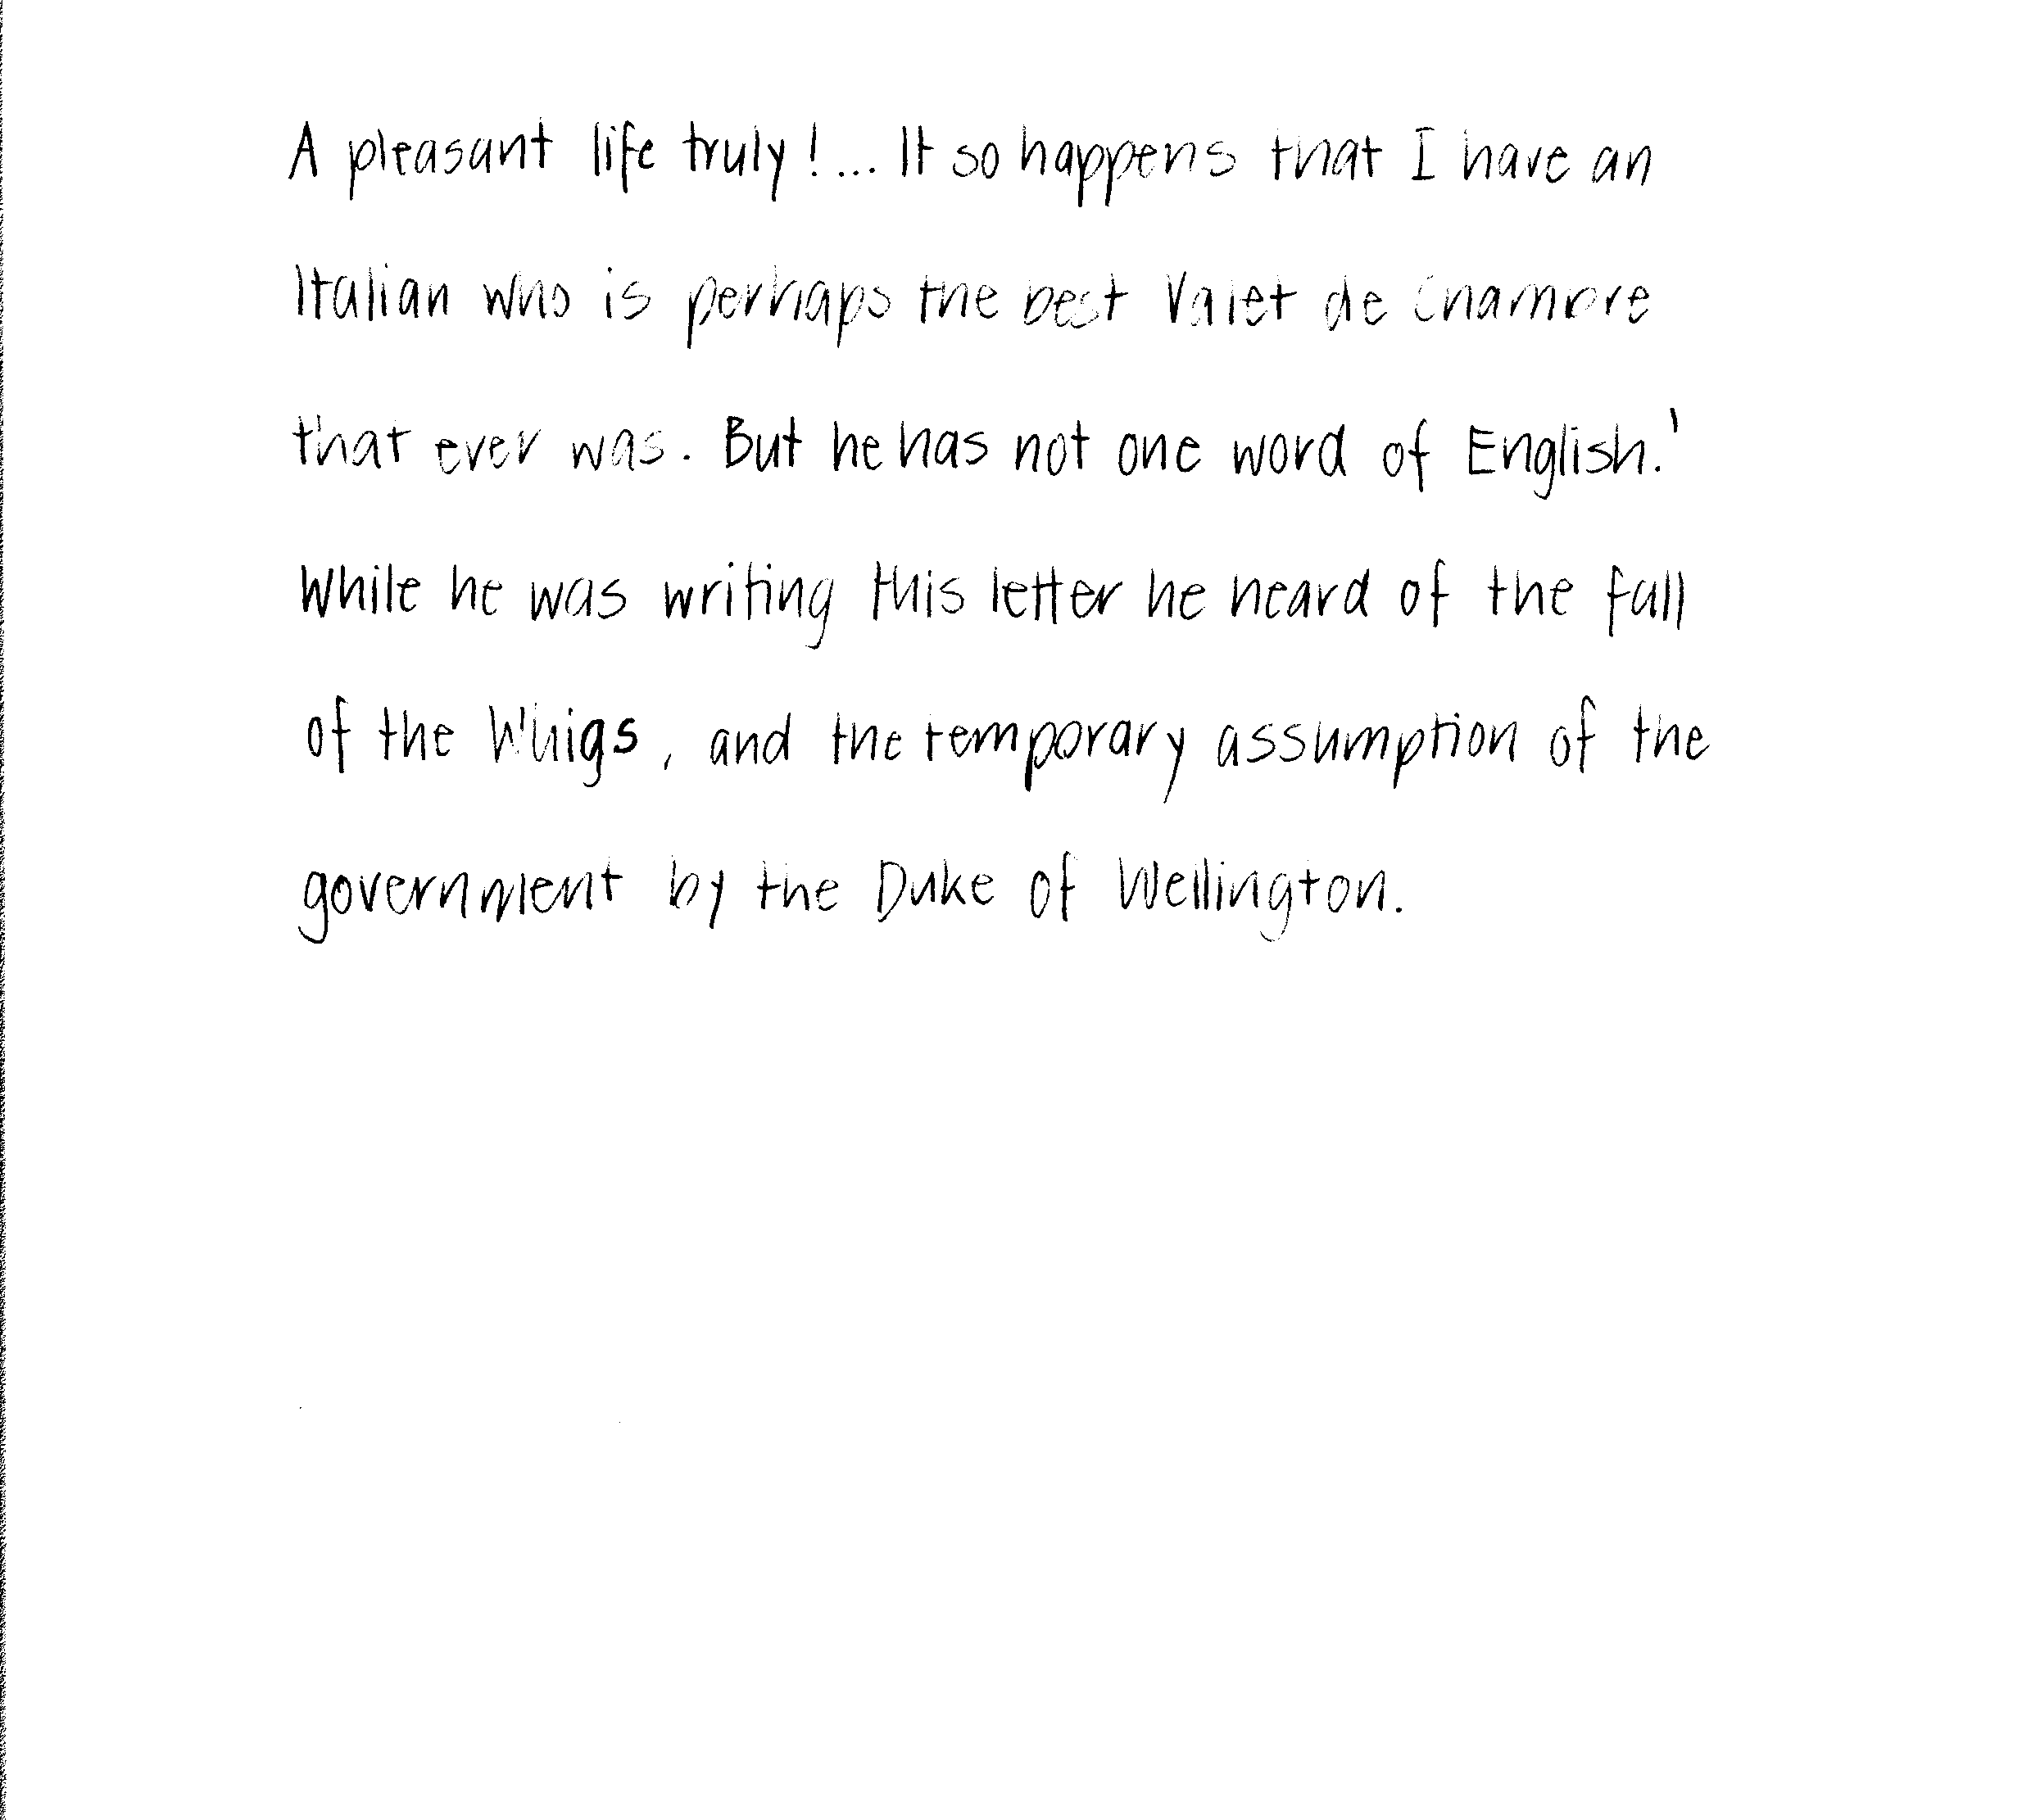 A pleasant life truly! ... It so happens that I have an
Italian who is perhaps the best Valet de Chambre
that ever was. But he has not one word of English.'
While he was writing this letter he heard of the fall
of the Whigs, and the temporary assumption of the
government by the Duke of Wellington.